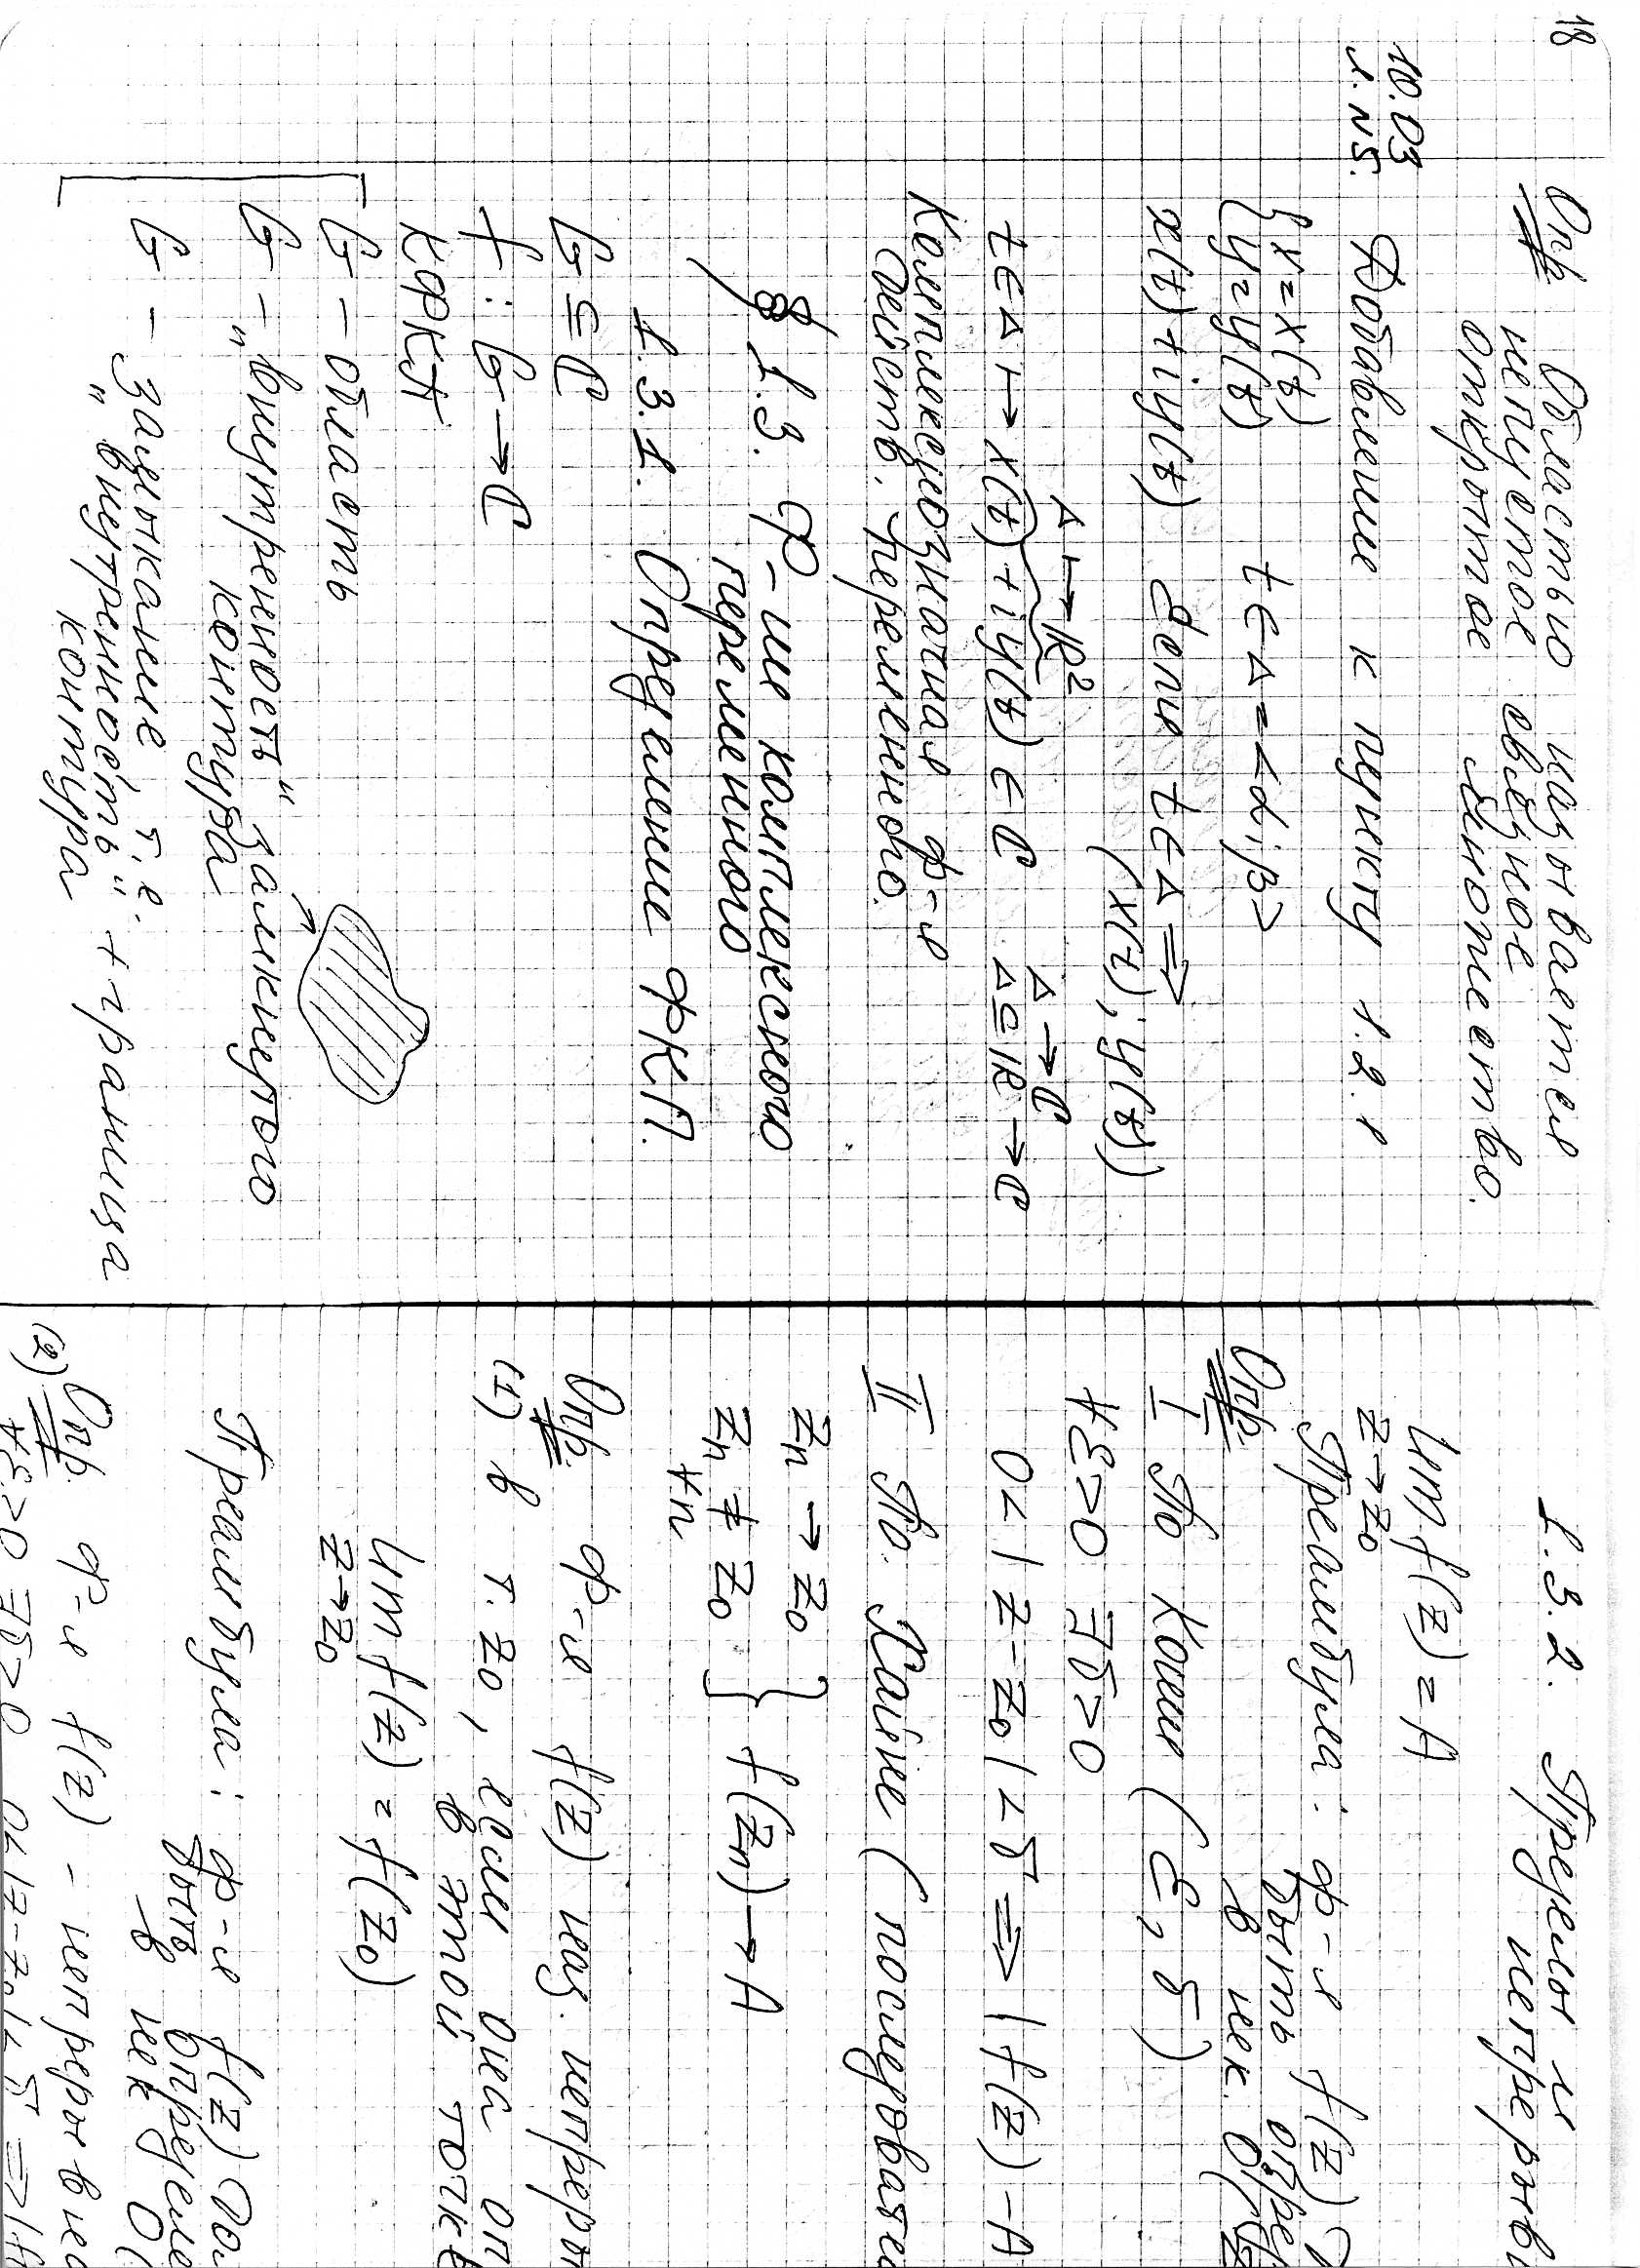 18
Опр Областью называется
непустое связное
открытое множество.
10.03
л.N5.
Добавление к пункту 1.2.1
{x=x(t)
{y=y(t) t∈Δ=<α;β>
x(t)+iy(t) Если t∈Δ ⇒
(x(t), y(t))
Δ ↦ ℝ²
t∈Δ ↦ x(t)+iy(t) ∈ ℂ
Δ → ℂ
Δ ⊆ ℝ → ℂ
Комплекснозначная ф-я
действ. переменного.
§ 1.3. Ф-ии комплексного
переменного
1.3.1. Определение ФКП.
G ⊆ ℂ
f : G → ℂ
КФКП
G – область
G – „внутреность" замкнутого
контура
G – замыкание, т.е.
„внутренность" + граница
контура
1.3.2. Пределы и
непрерыв
lim f(z) = A
z→z₀
Преамбула: ф-я f(z)
Опр. быть опре
в нек. O(z
I По Коши (ε, δ)
∀ε>0 ∃δ>0
0<|z-z₀|<δ ⇒ |f(z)-A
II По Гайне (последовате
zₙ → z₀
zₙ ≠ z₀ } f(zₙ) → A
∀n
Опр. ф-я f(z) наз. непреры
(1) в т. z₀, если она оп
в этой точке
lim f(z) = f(z₀)
z→z₀
Преамбула: ф-я f(z) дол
быть определе
в нек O(
(2) Опр. ф-я f(z) – непрерывна
∀ε>0 ∃δ>0 0<|z-z₀|<δ ⇒ |f(